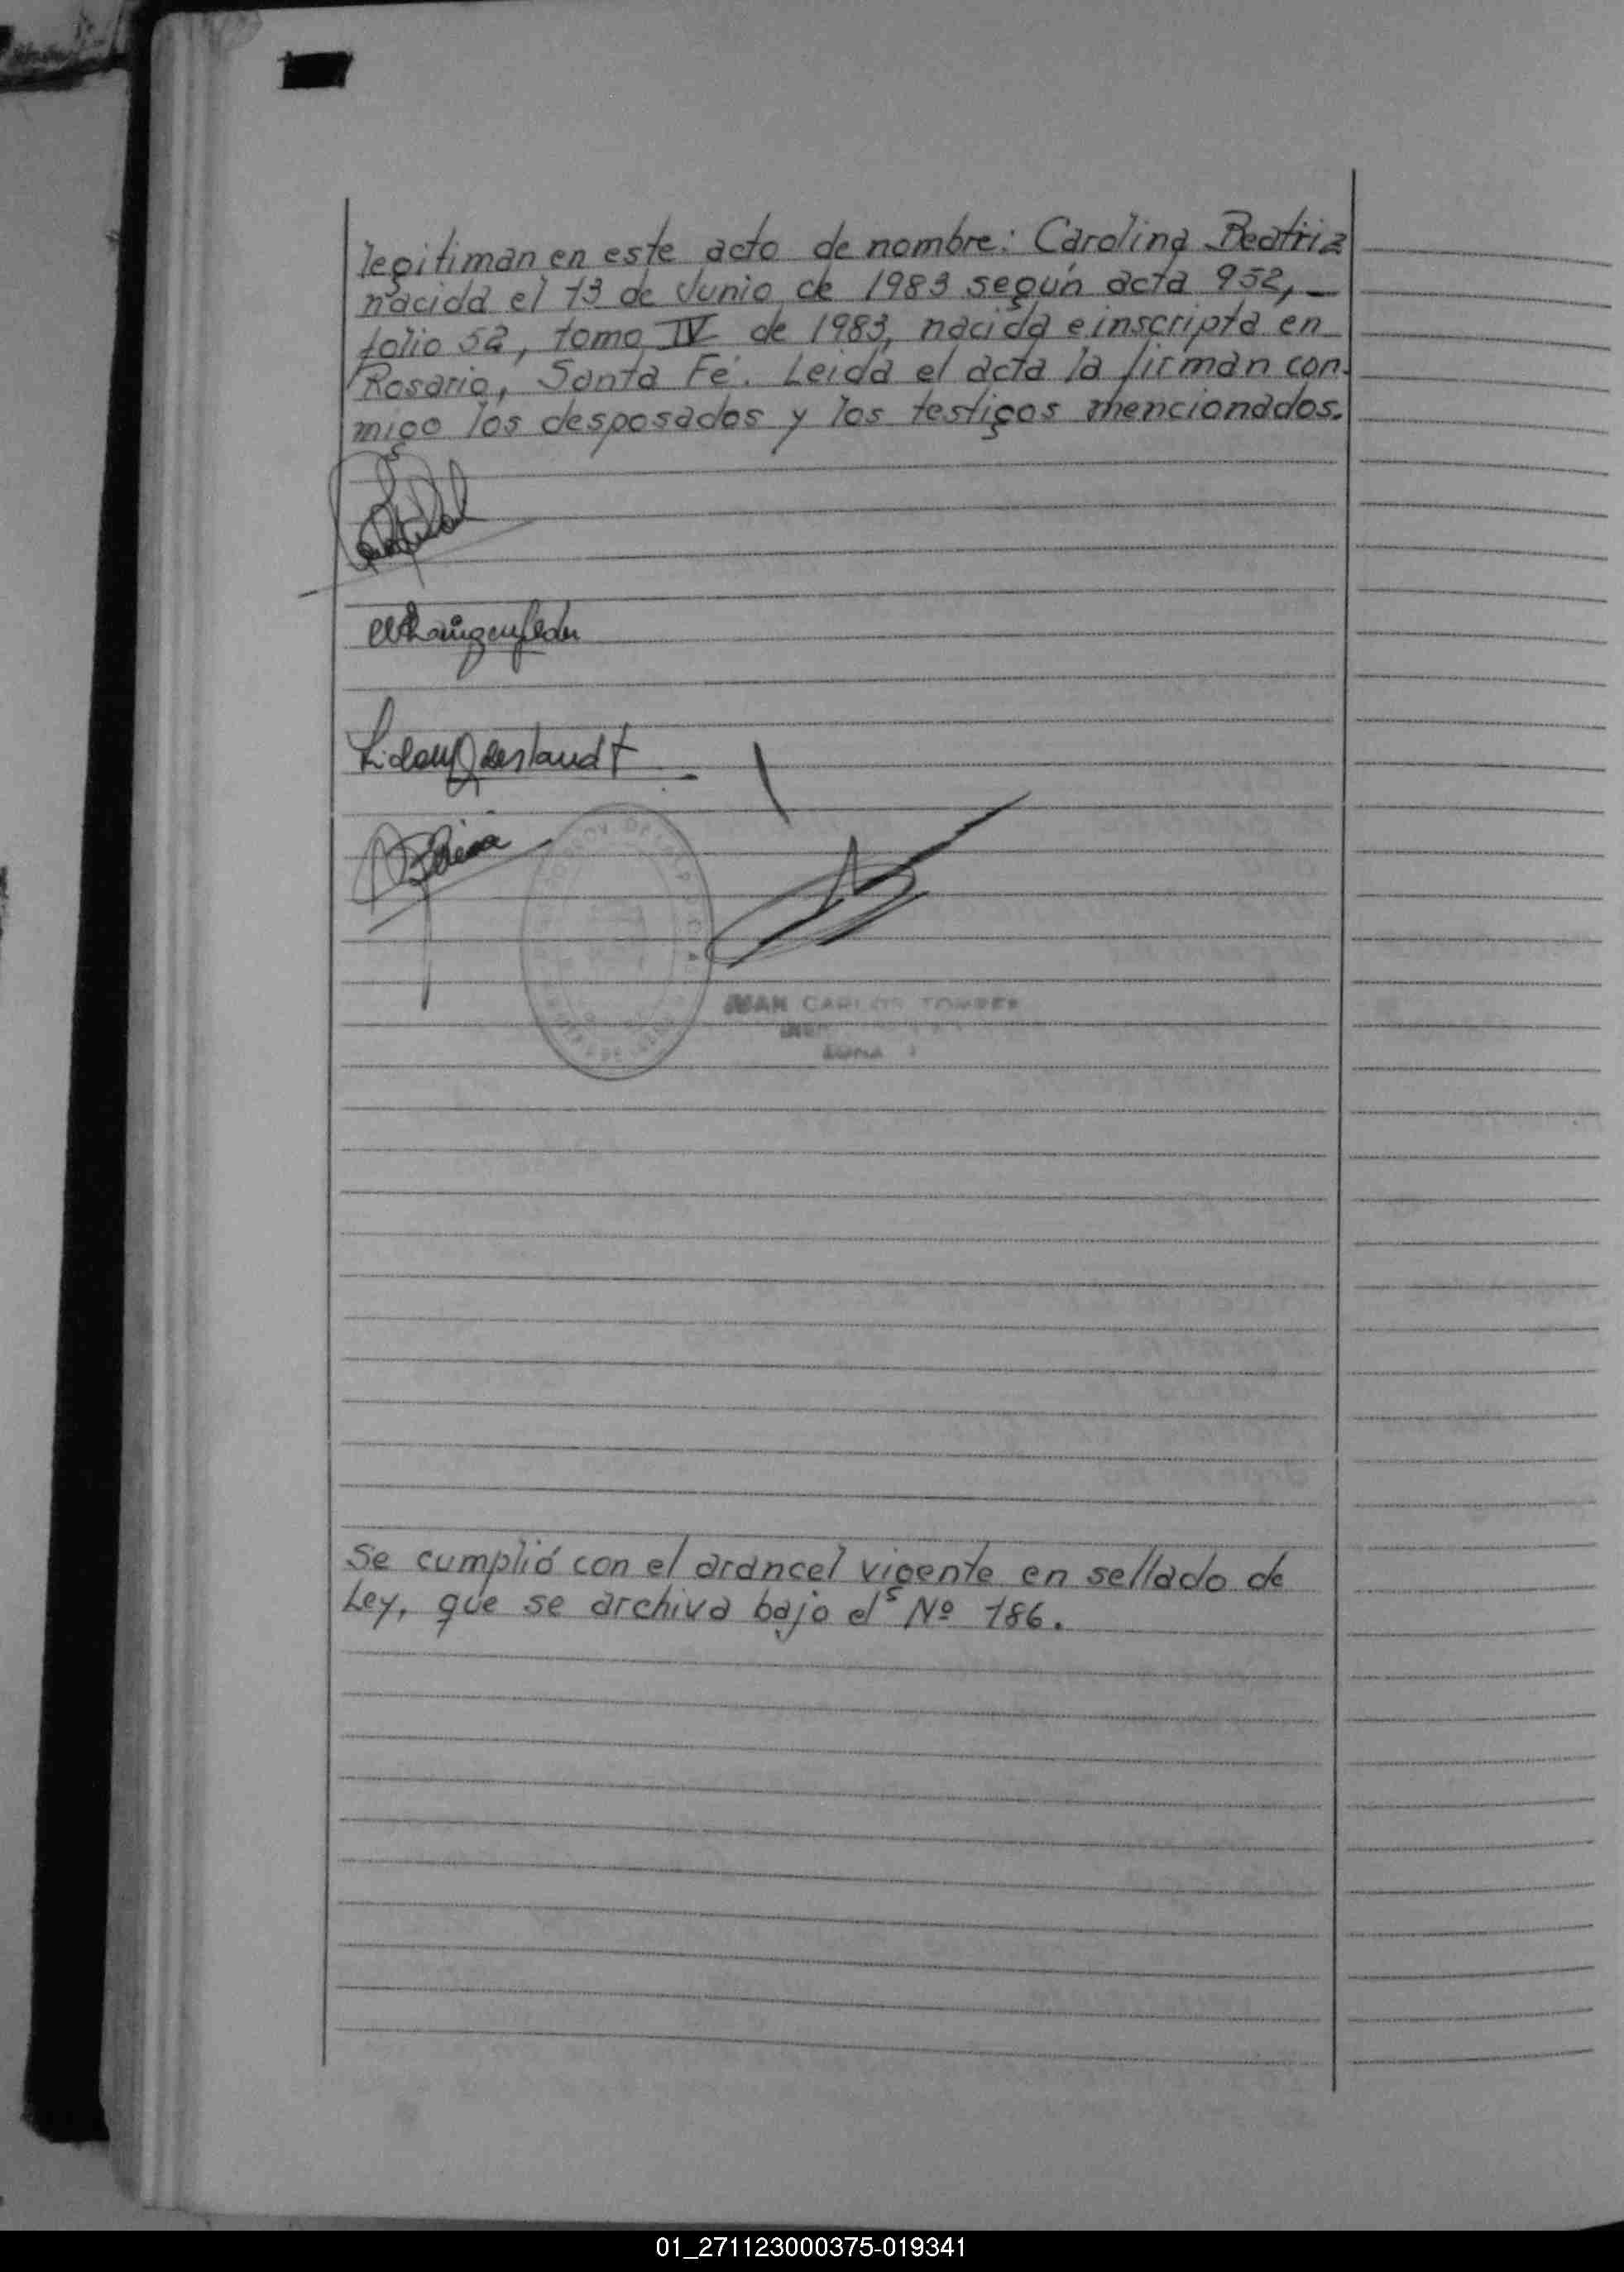 legitiman en este acto de nombre: Carolina Beatriz
nacida el 13 de Junio de 1983 según acta 952, —
folio 52, tomo IV de 1983, nacida e inscripta en
Rosario, Santa Fé. Leida el acta la firman con-
migo los desposados y los testigos mencionados.
JUAN CARLOS TORRES
ZONA
Se cumplió con el arancel vigente en sellado de
Ley, que se archiva bajo el Nº 186.
01_271123000375-019341